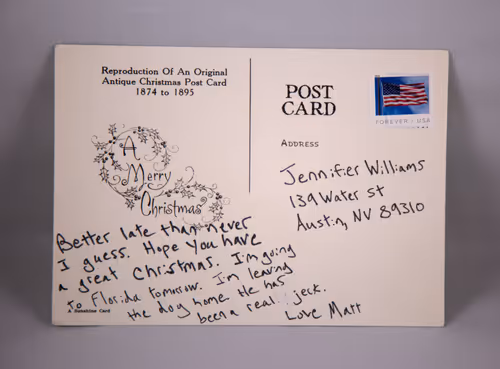 Reproduction Of An Original
Antique Christmas Post Card
1874 to 1895
A
Merry
Christmas
Better late than never
I guess. Hope You have
a great Christmas. I'm going
to Florida tomorrow. I'm leaving
the dog home He has
been a real jerk.
Love Matt
A Sunshine Card
POST
CARD
FOREVER / USA
ADDRESS
Jennifier Williams
139 Water st
Austin, NV 89310